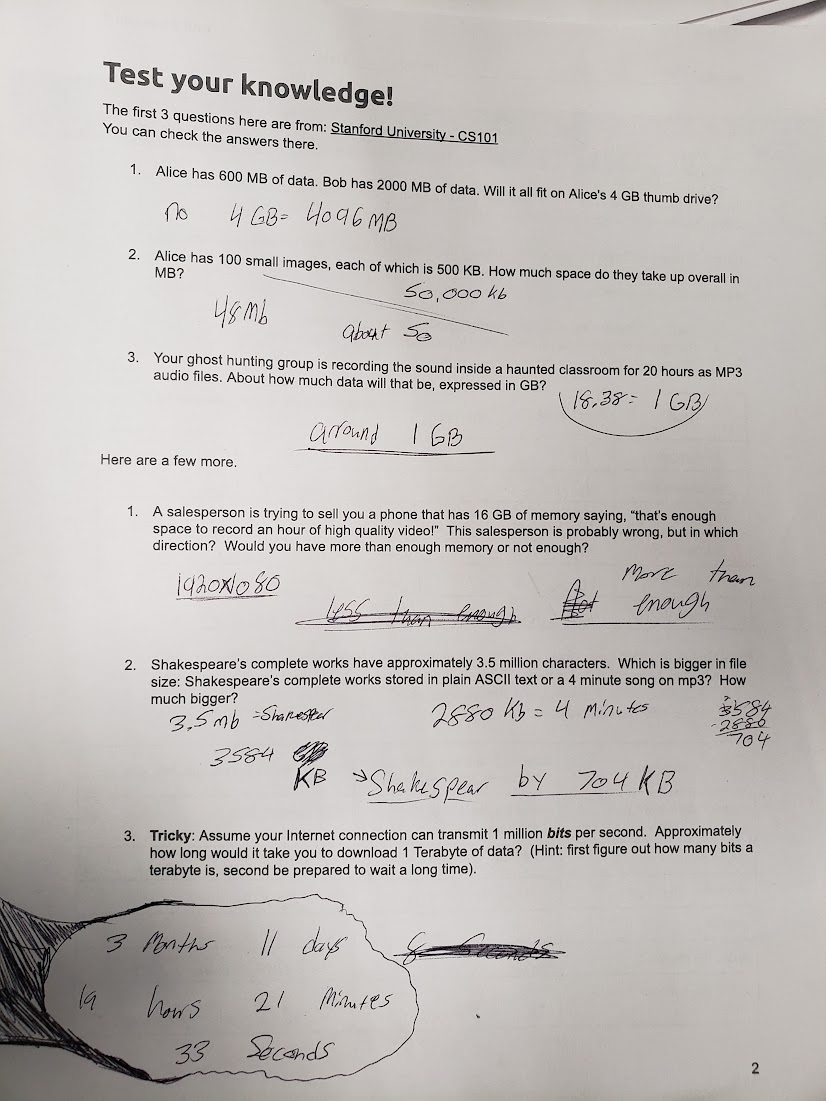 Test your knowledge!
The first 3 questions here are from: Stanford University - CS101
You can check the answers there.
1. Alice has 600 MB of data. Bob has 2000 MB of data. Will it all fit on Alice's 4 GB thumb drive?
no 4 GB= 4096 MB
2. Alice has 100 small images, each of which is 500 KB. How much space do they take up overall in
MB?
50,000 kb
48 Mb
about 50
3. Your ghost hunting group is recording the sound inside a haunted classroom for 20 hours as MP3
audio files. About how much data will that be, expressed in GB?
18.38= 1 GB
around 1 GB
Here are a few more.
1. A salesperson is trying to sell you a phone that has 16 GB of memory saying, "that's enough
space to record an hour of high quality video!" This salesperson is probably wrong, but in which
direction? Would you have more than enough memory or not enough?
1920x1080
More than
less than enough
enough
2. Shakespeare's complete works have approximately 3.5 million characters. Which is bigger in file
size: Shakespeare's complete works stored in plain ASCII text or a 4 minute song on mp3? How
much bigger?
3.5 mb = 2880 Kb = 4 Minutes 3584
-2880
704
3584
KB → Shakespear by 704 KB
3. Tricky: Assume your Internet connection can transmit 1 million bits per second. Approximately
how long would it take you to download 1 Terabyte of data? (Hint: first figure out how many bits a
terabyte is, second be prepared to wait a long time).
3 Months 11 days
19 hours 21 Minutes
33 Seconds
2